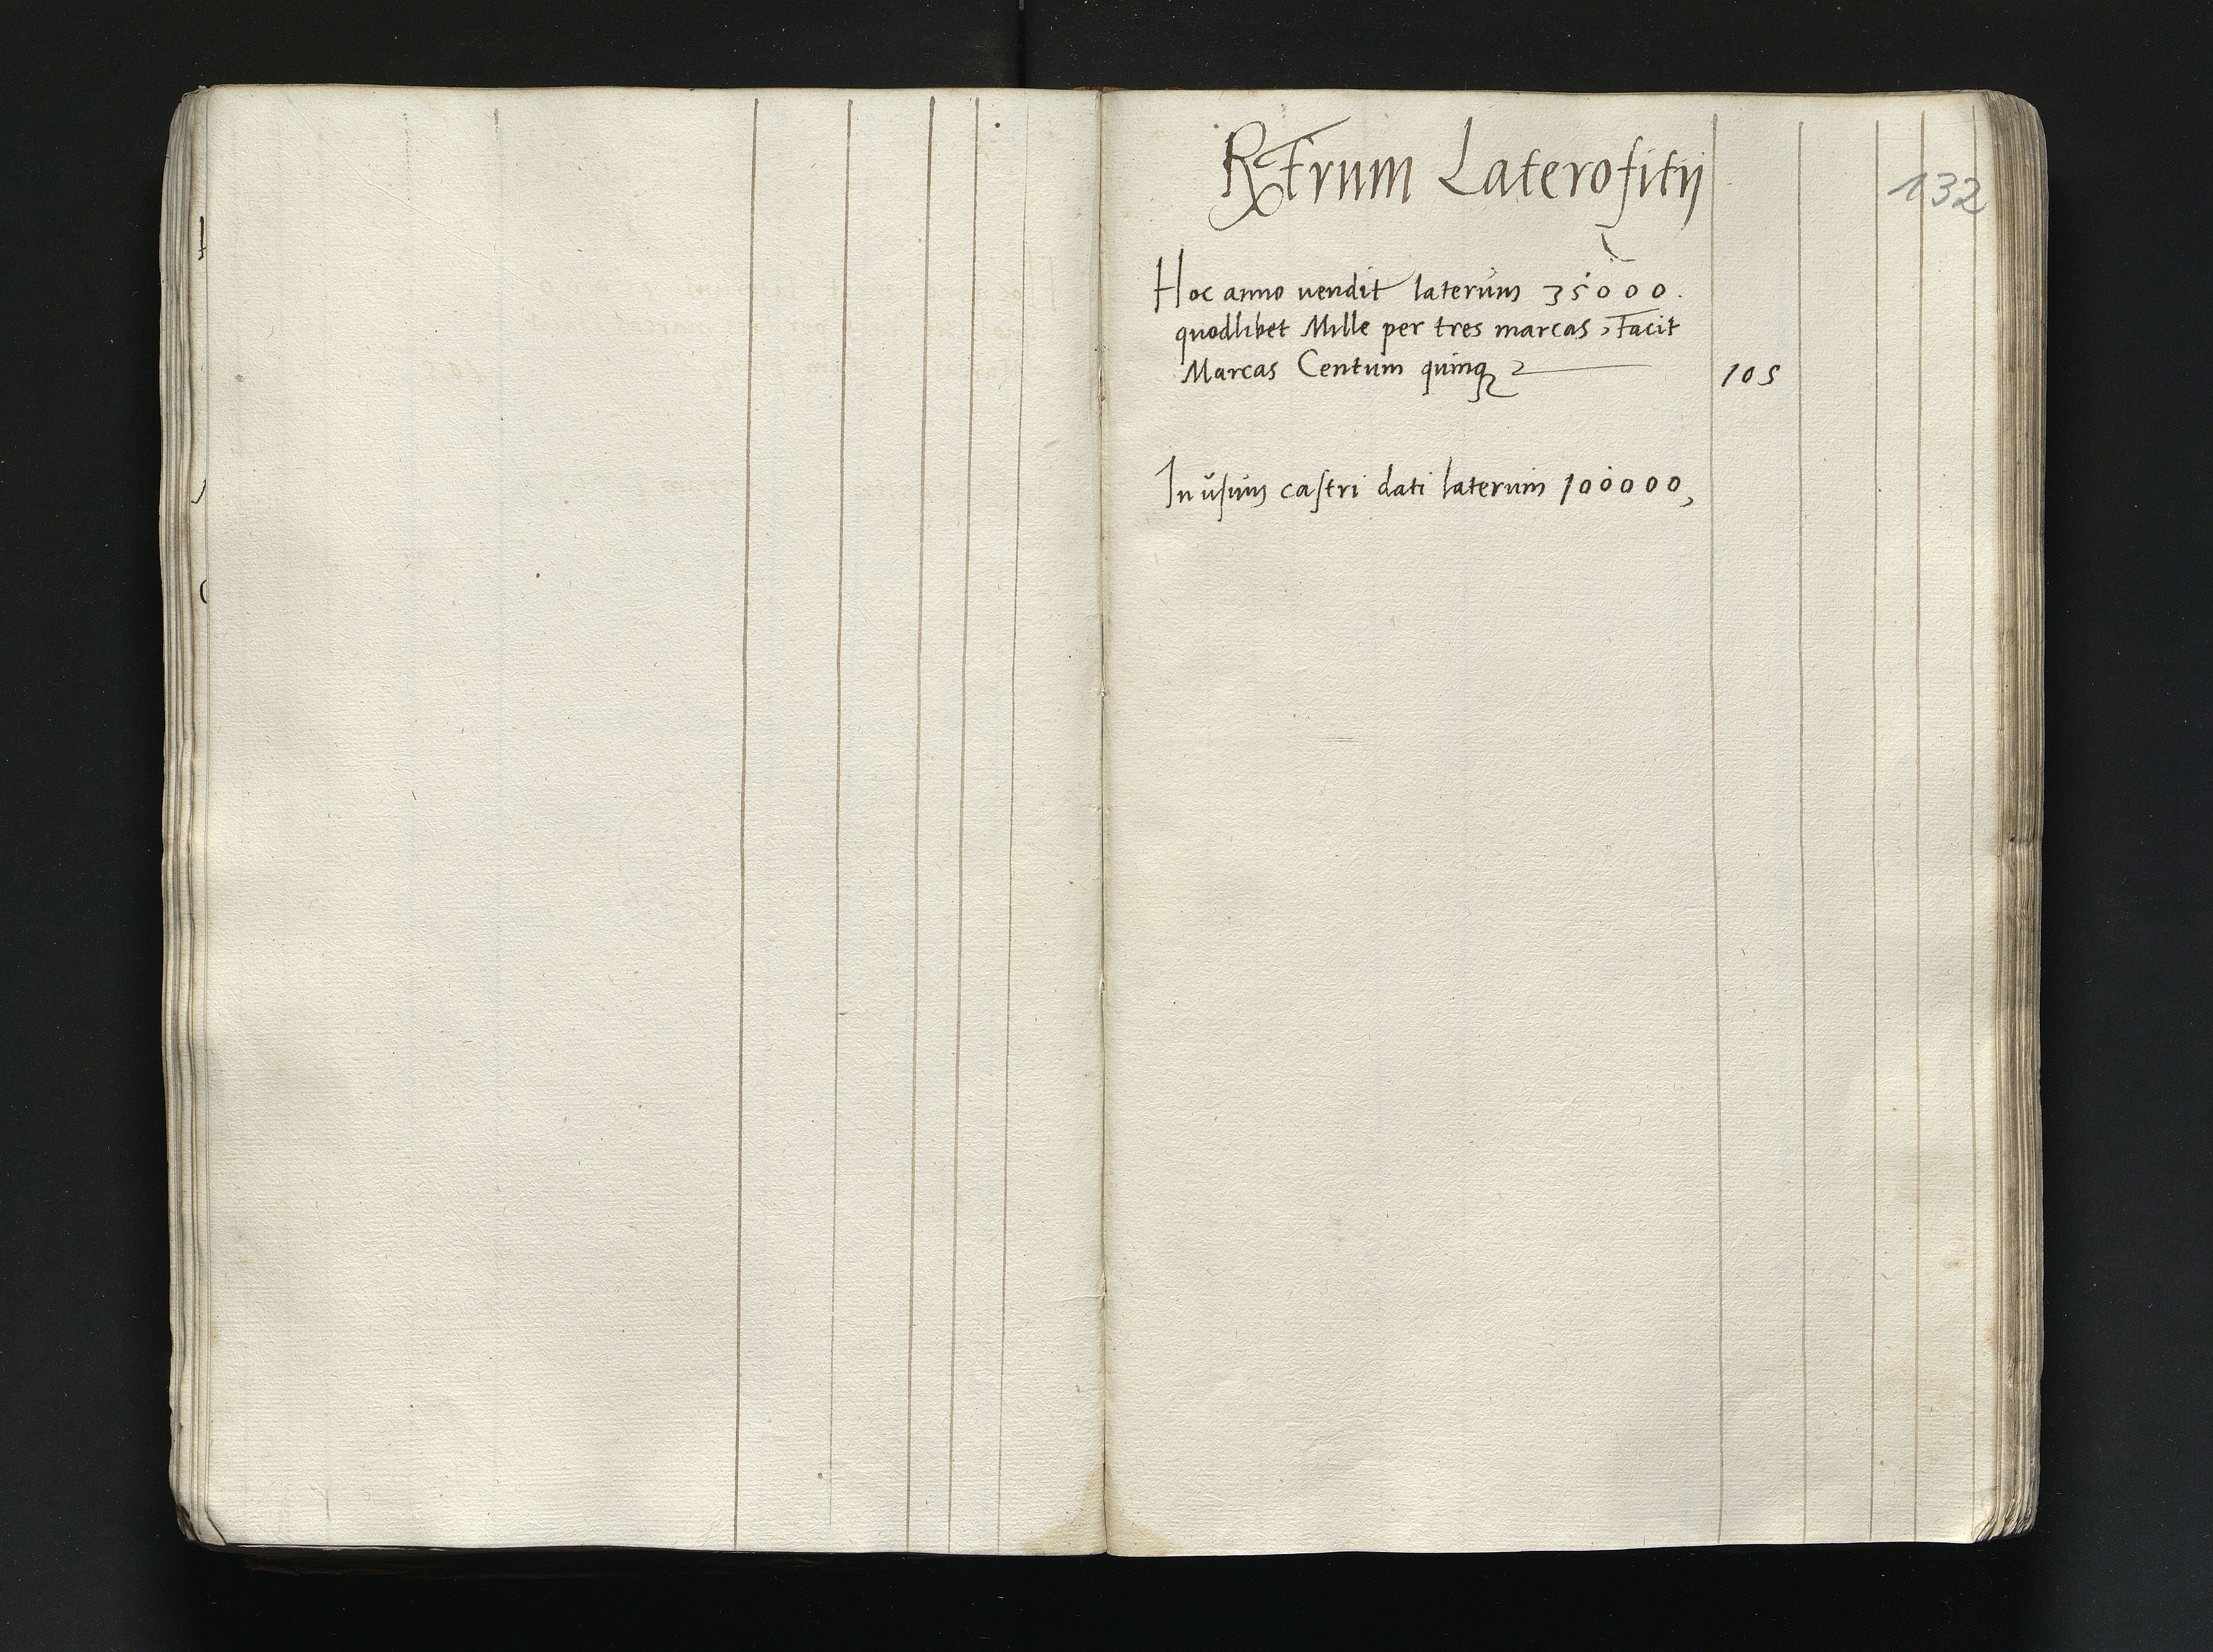 132
Rtrum Laterofitij
Hoc anno vendit laterum 35000.
quodlibet Mille per tres marcas, Facit
Marcas Centum quinq 105
In usum castri dati laterum 100000,